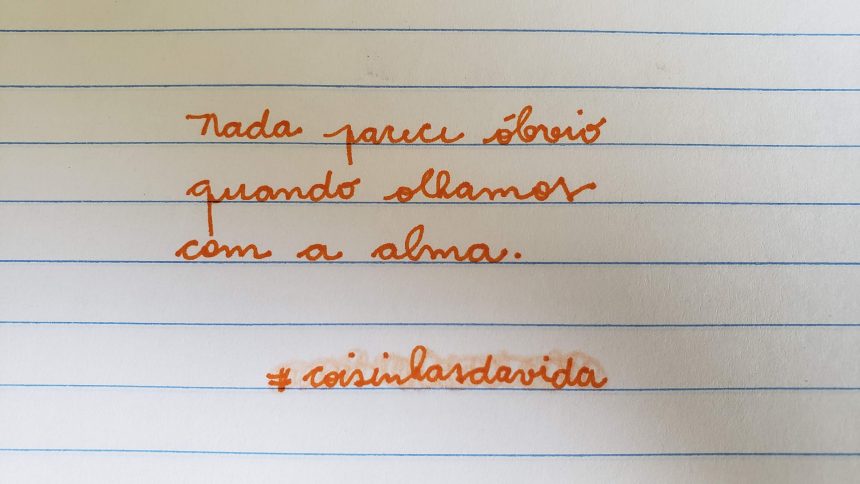 Nada parece óbvio
quando olhamos
com a alma.
#coisinhasdavida